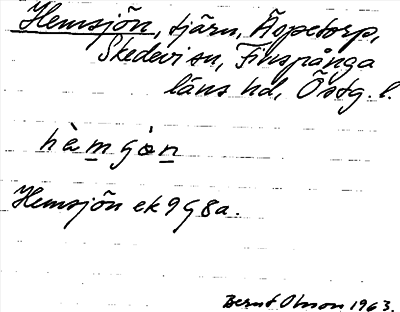 Hemsjön, tjärn, Äspetorp,
Skedevi sn, Finspånga
läns hd, Östg. l.
hèmgòn
Hemsjön ek 9 G 8 a.
Bernt Olsson 1963.